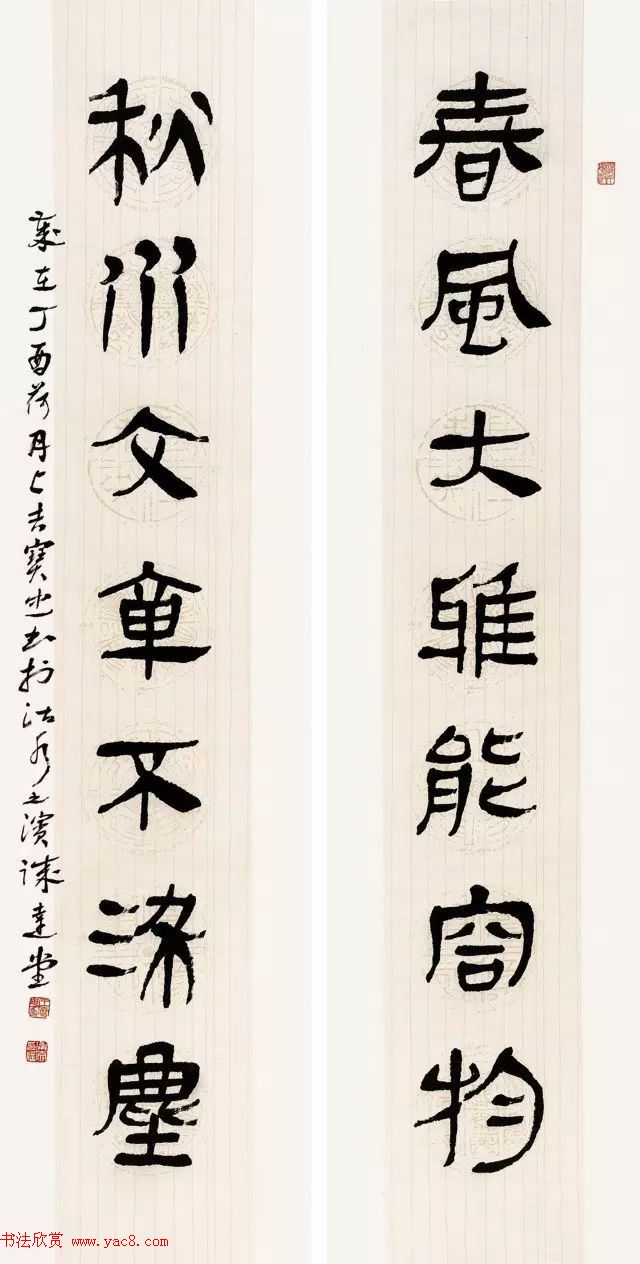 春風大雅能容物
秋水文章不染塵
歲在丁酉荷月上吉寶忠书於沽水之濱诚達堂
书法欣赏 www.yac8.com